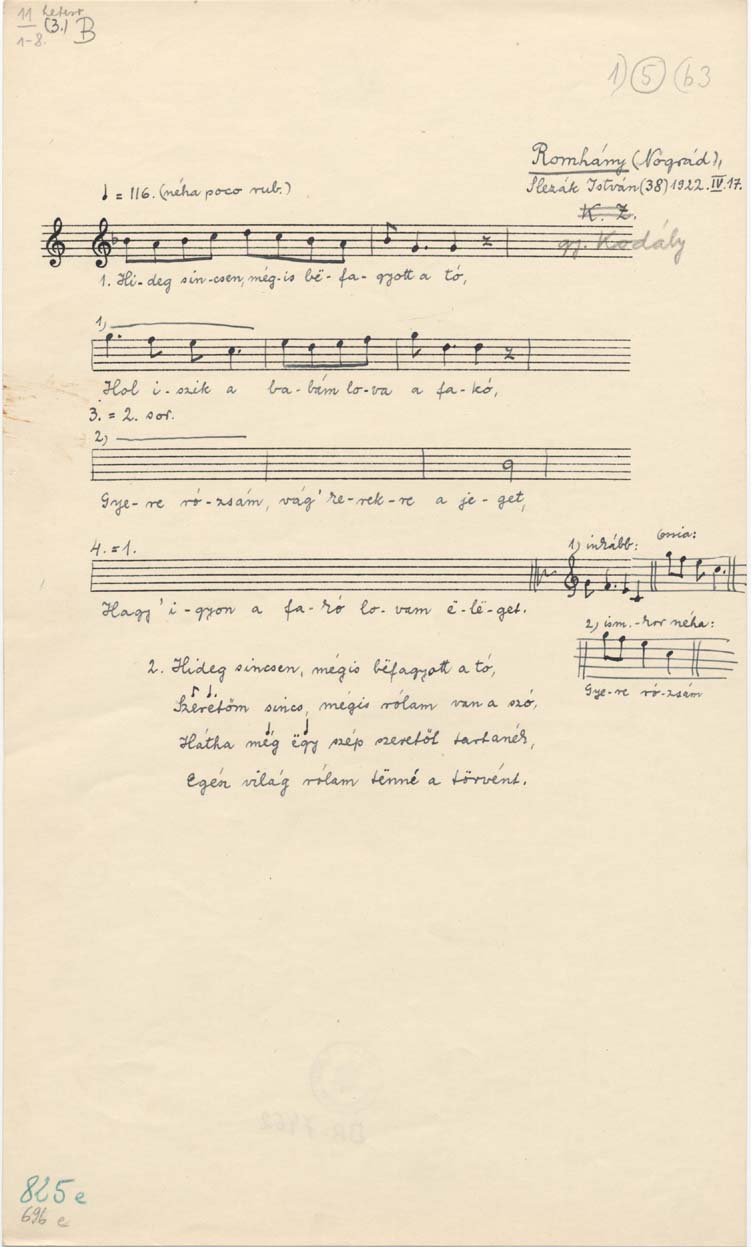 11
1-8.
(3.) B
1) 5 (b3
Romhány (Nógrád),
Slezák István (38) 1922. IV. 17.
K. Z.
gy. Kodály
♩ = 116. (néha poco rub.)
1. Hi-deg sin-csen, még-is bë-fa-gyott a tó,
1)
Hol i-szik a ba-bám lo-va a fa-kó,
3. = 2. sor.
2)
Gye-re ró-zsám, vág' ke-rek-re a je-get,
4. = 1.
Hagy' i-gyon a fa-kó lo-vam ë-lë-get.
1) inkább:
2) ism.-kor néha:
Gye-re ró-zsám
2. Hideg sincsen, mégis bëfagyott a tó,
Szeretőm sincs, mégis rólam van a szó,
Hátha még ëgy szép szeretőt tartanék,
Egész világ rólam tënné a törvént.
825 e
696 e